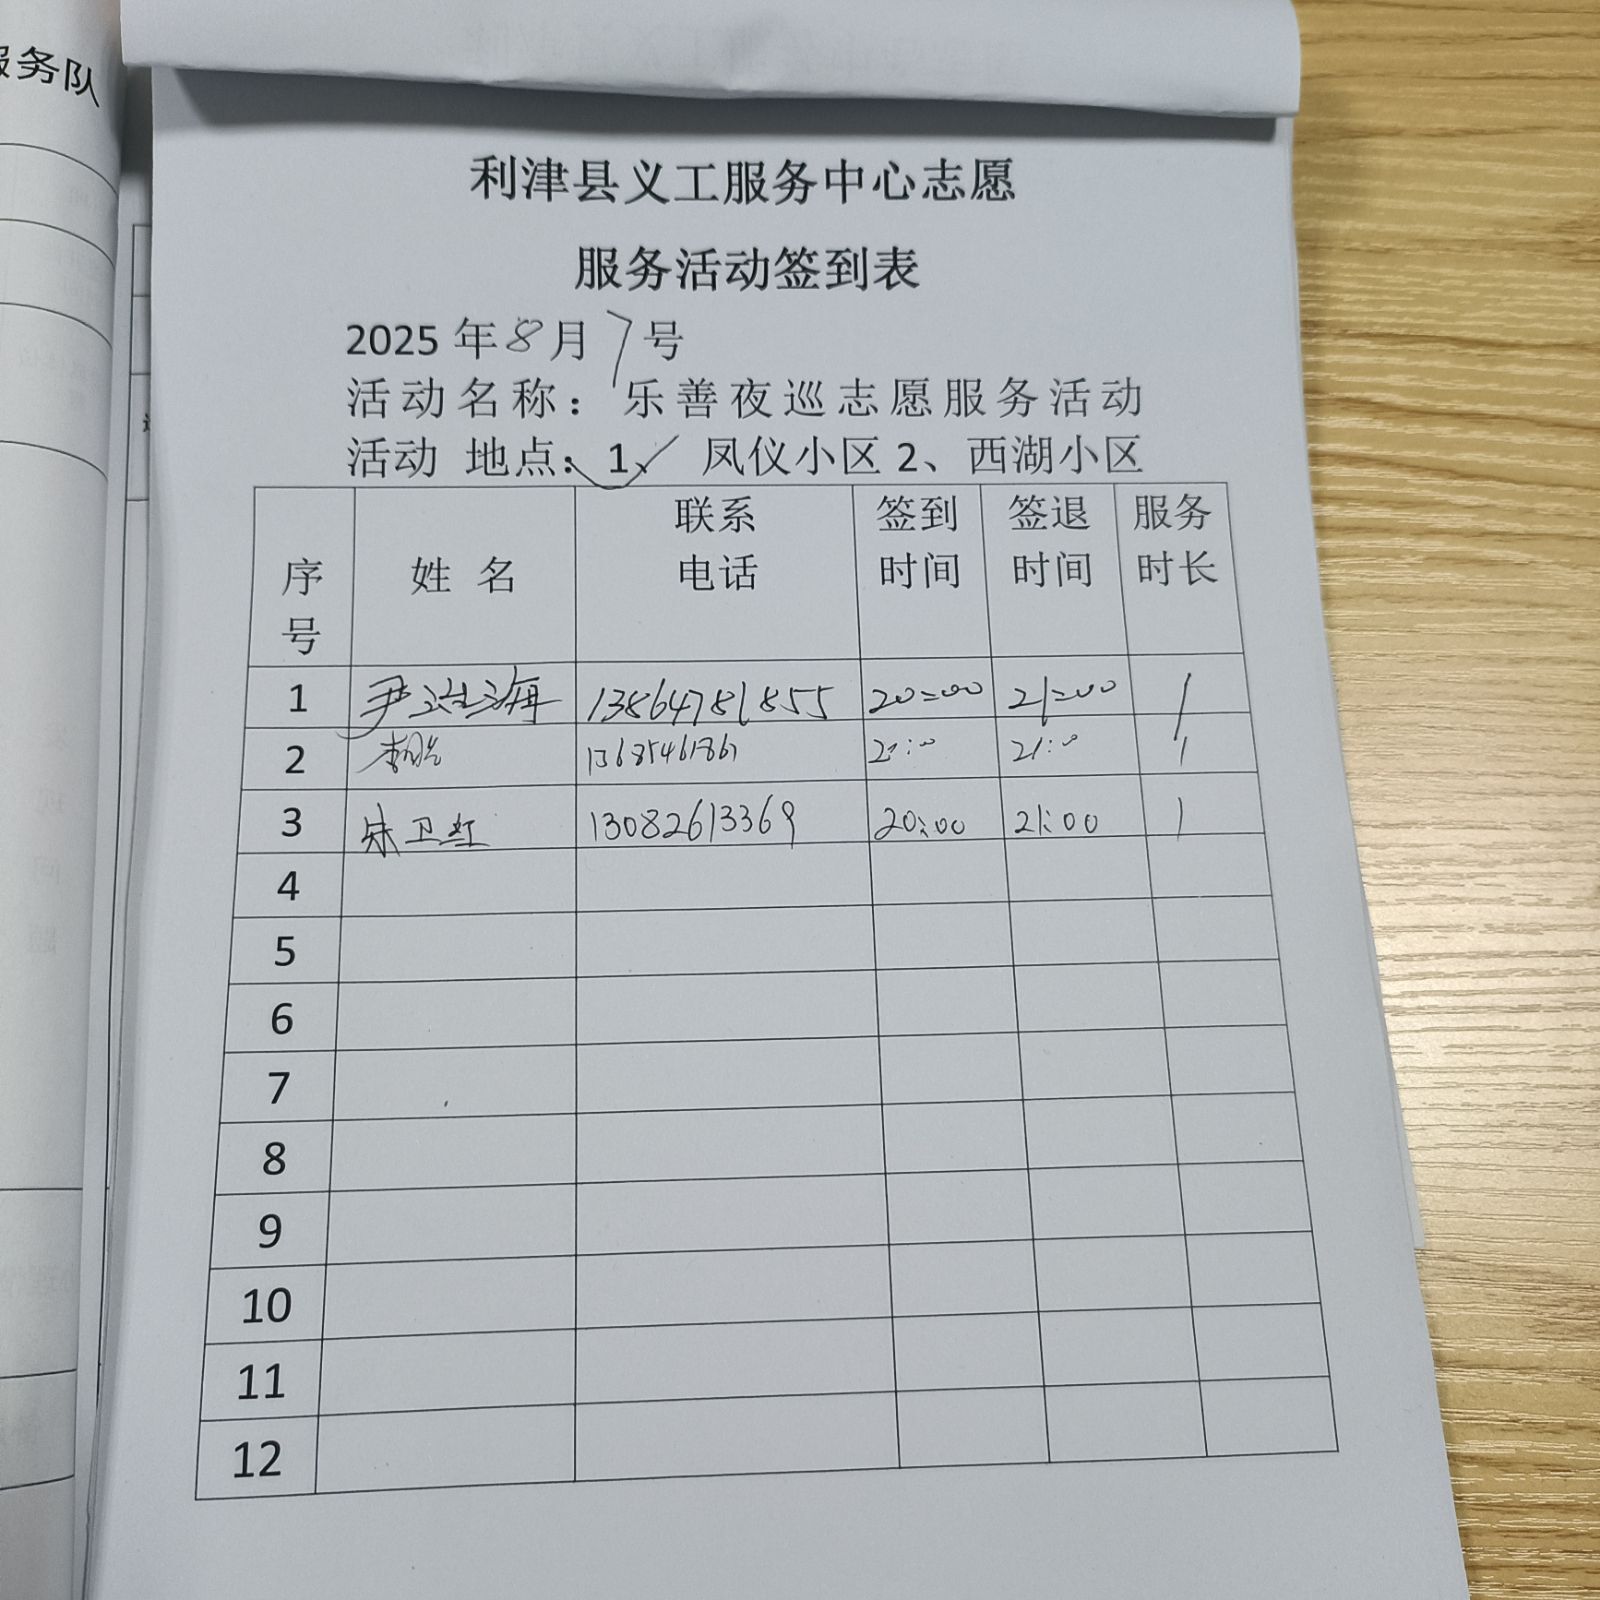 服务队
利津县义工服务中心志愿
服务活动签到表
2025 年 8 月 7 号
活动名称：乐善夜巡志愿服务活动
活动 地点：1、凤仪小区 2、西湖小区
序号 姓 名 联系电话 签到时间 签退时间 服务时长
1 尹 海 13864781855 20:00 21:00 1
2 李 21:0 1
3 宋卫红 13082613369 20:00 21:00 1
4
5
6
7
8
9
10
11
12